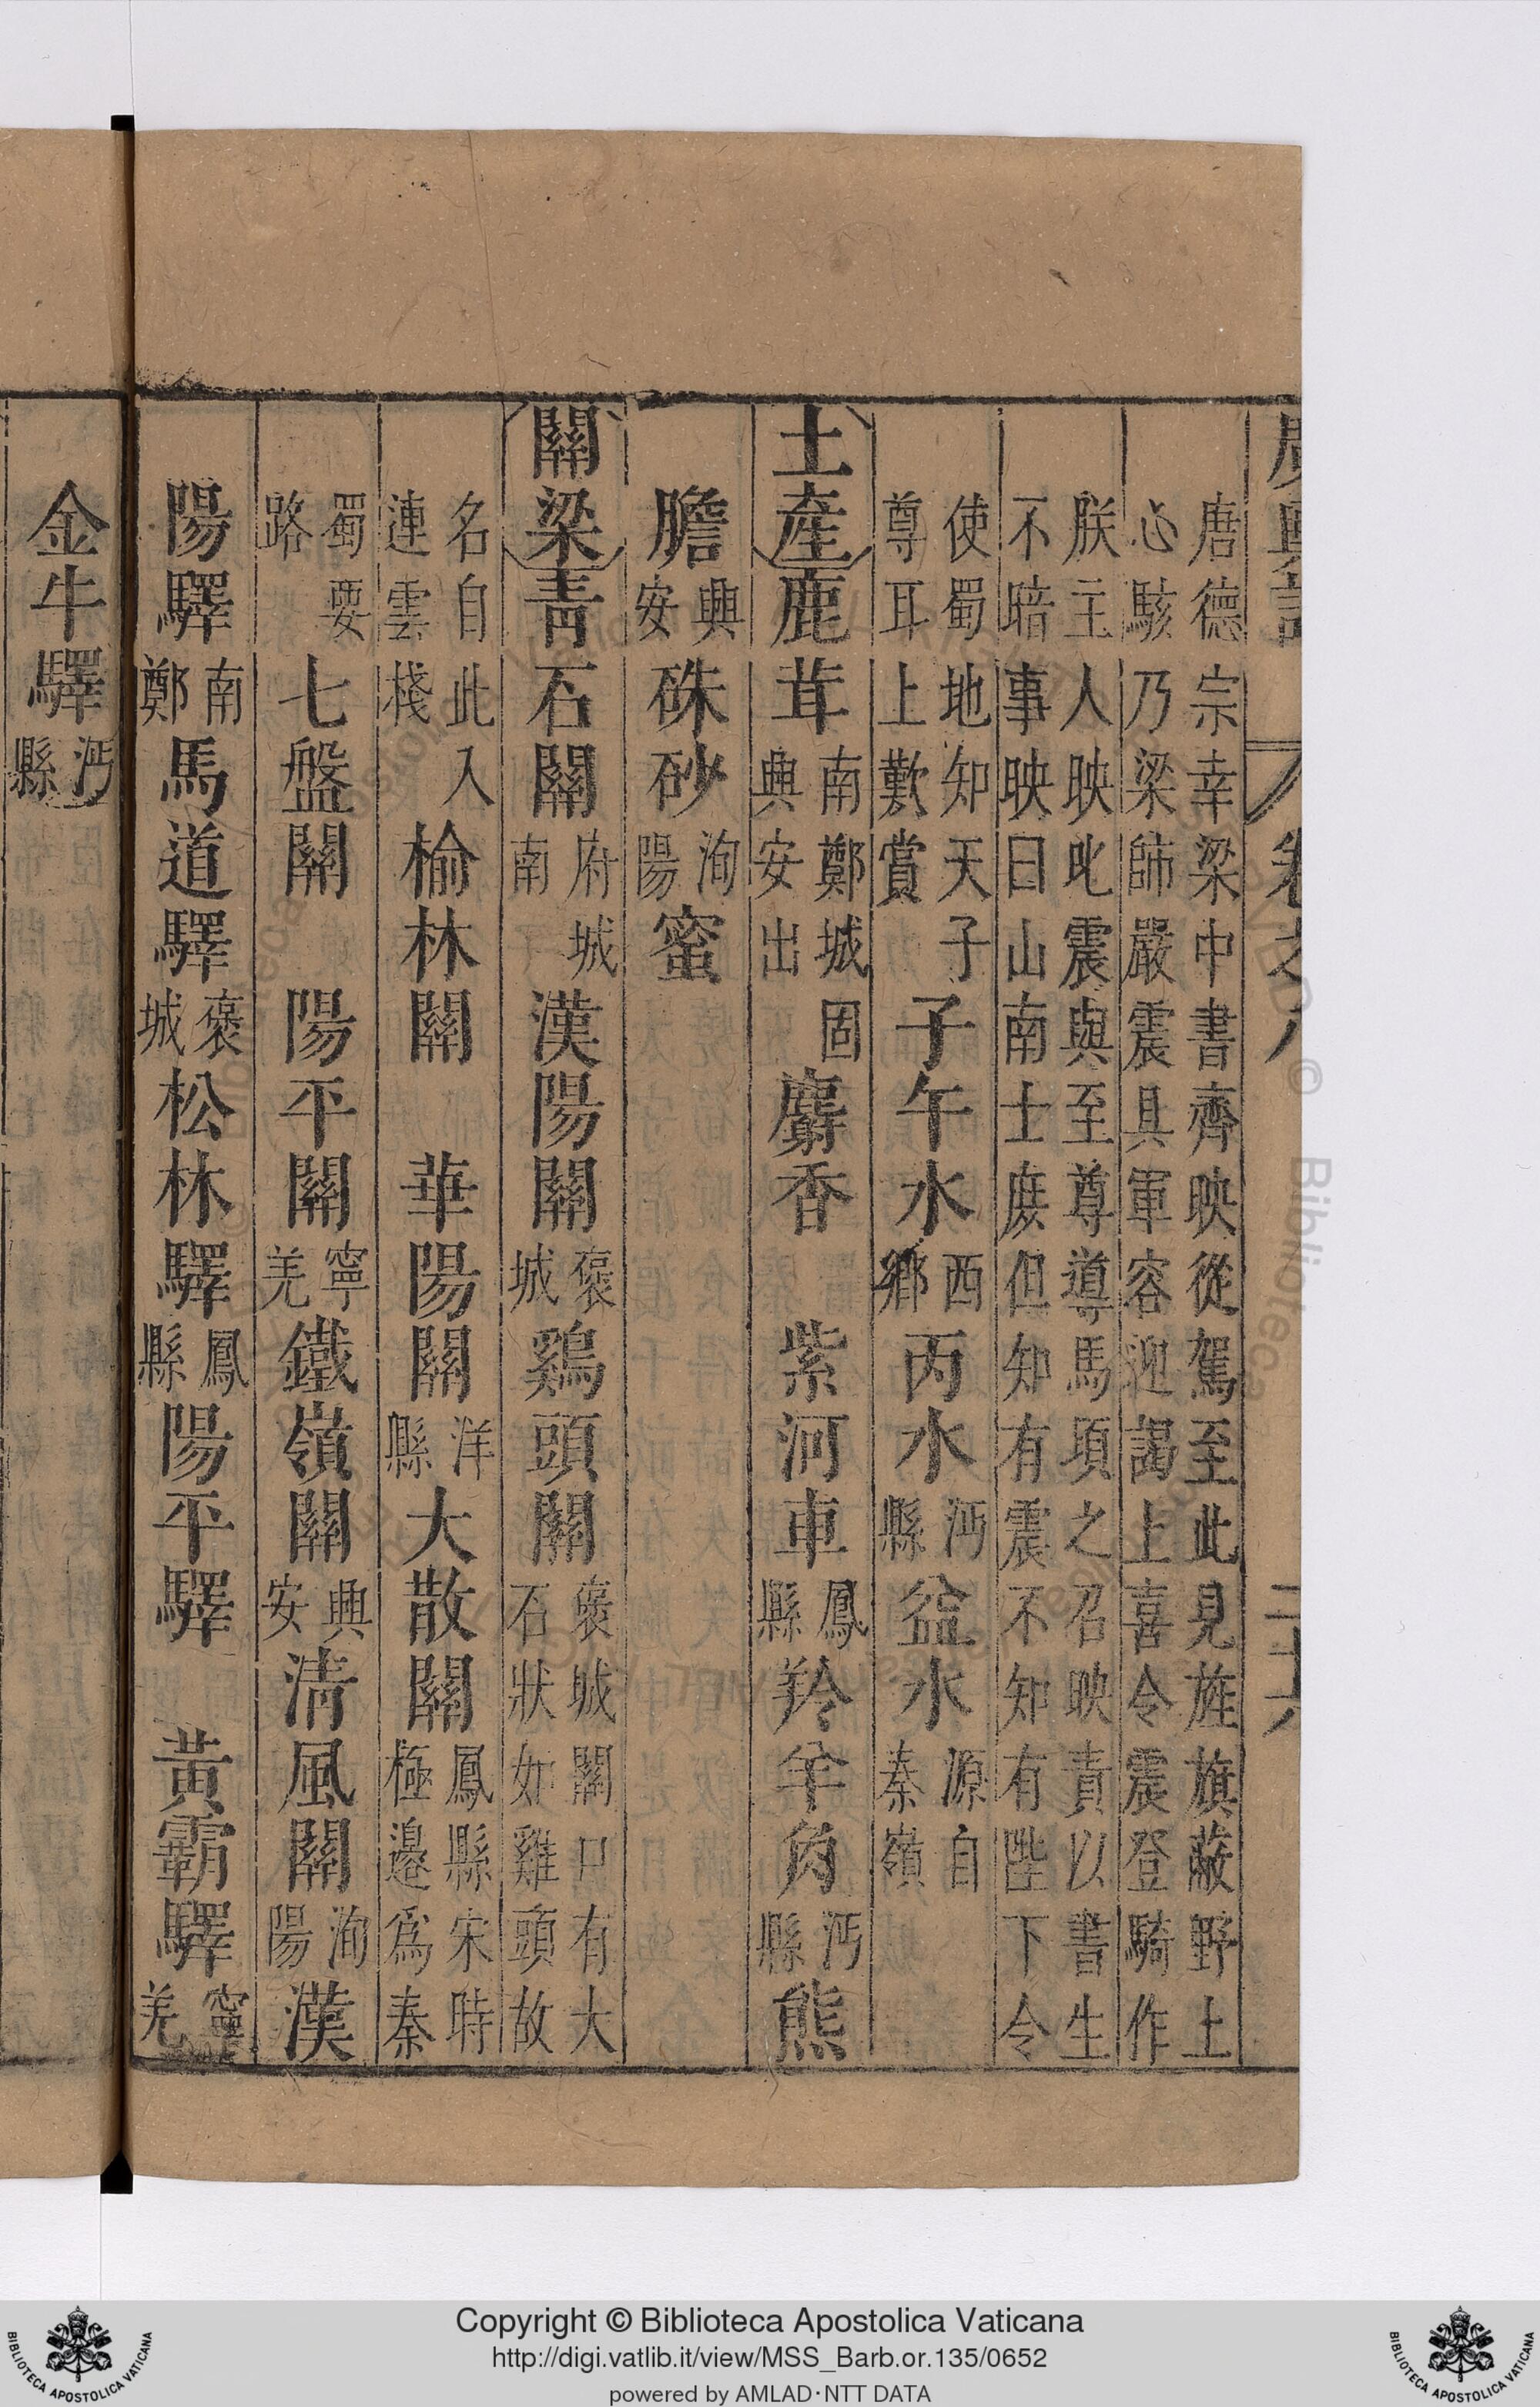 廣輿記 卷之八 二十六
唐德宗幸梁中書齊映從駕至此見旌旗蔽野土
心駭乃梁帥嚴震具軍容迎謁上喜令震登騎作
朕主人映叱震與至尊導馬頃之召映責以書生
不暗事映曰山南士庶但知有震不知有陛下令
使蜀地知天子
尊耳上歎賞
子午水
西鄉
丙水
沔縣
益水
源自秦嶺
土產鹿茸
南鄭城固
興安出
麝香
紫河車
鳳縣
羚羊角
沔縣
熊
膽
興安
硃砂
洵陽
蜜
關梁青石關
府城南
漢陽關
褒城
鷄頭關
褒城關口有大
石狀如雞頭故
名自此入
連雲棧
榆林關
華陽關
洋縣
大散關
鳳縣宋時
極邉為秦
蜀要路
七盤關
陽平關
寧羌
鐵嶺關
興安
清風關
洵陽
漢
陽驛
南鄭
馬道驛
褒城
松林驛
鳳縣
陽平驛
黃霸驛
寧羌
金牛驛
沔縣
Copyright © Biblioteca Apostolica Vaticana
http://digi.vatlib.it/view/MSS_Barb.or.135/0652
powered by AMLAD·NTT DATA
BIBLIOTECA APOSTOLICA VATICANA
BIBLIOTECA APOSTOLICA VATICANA